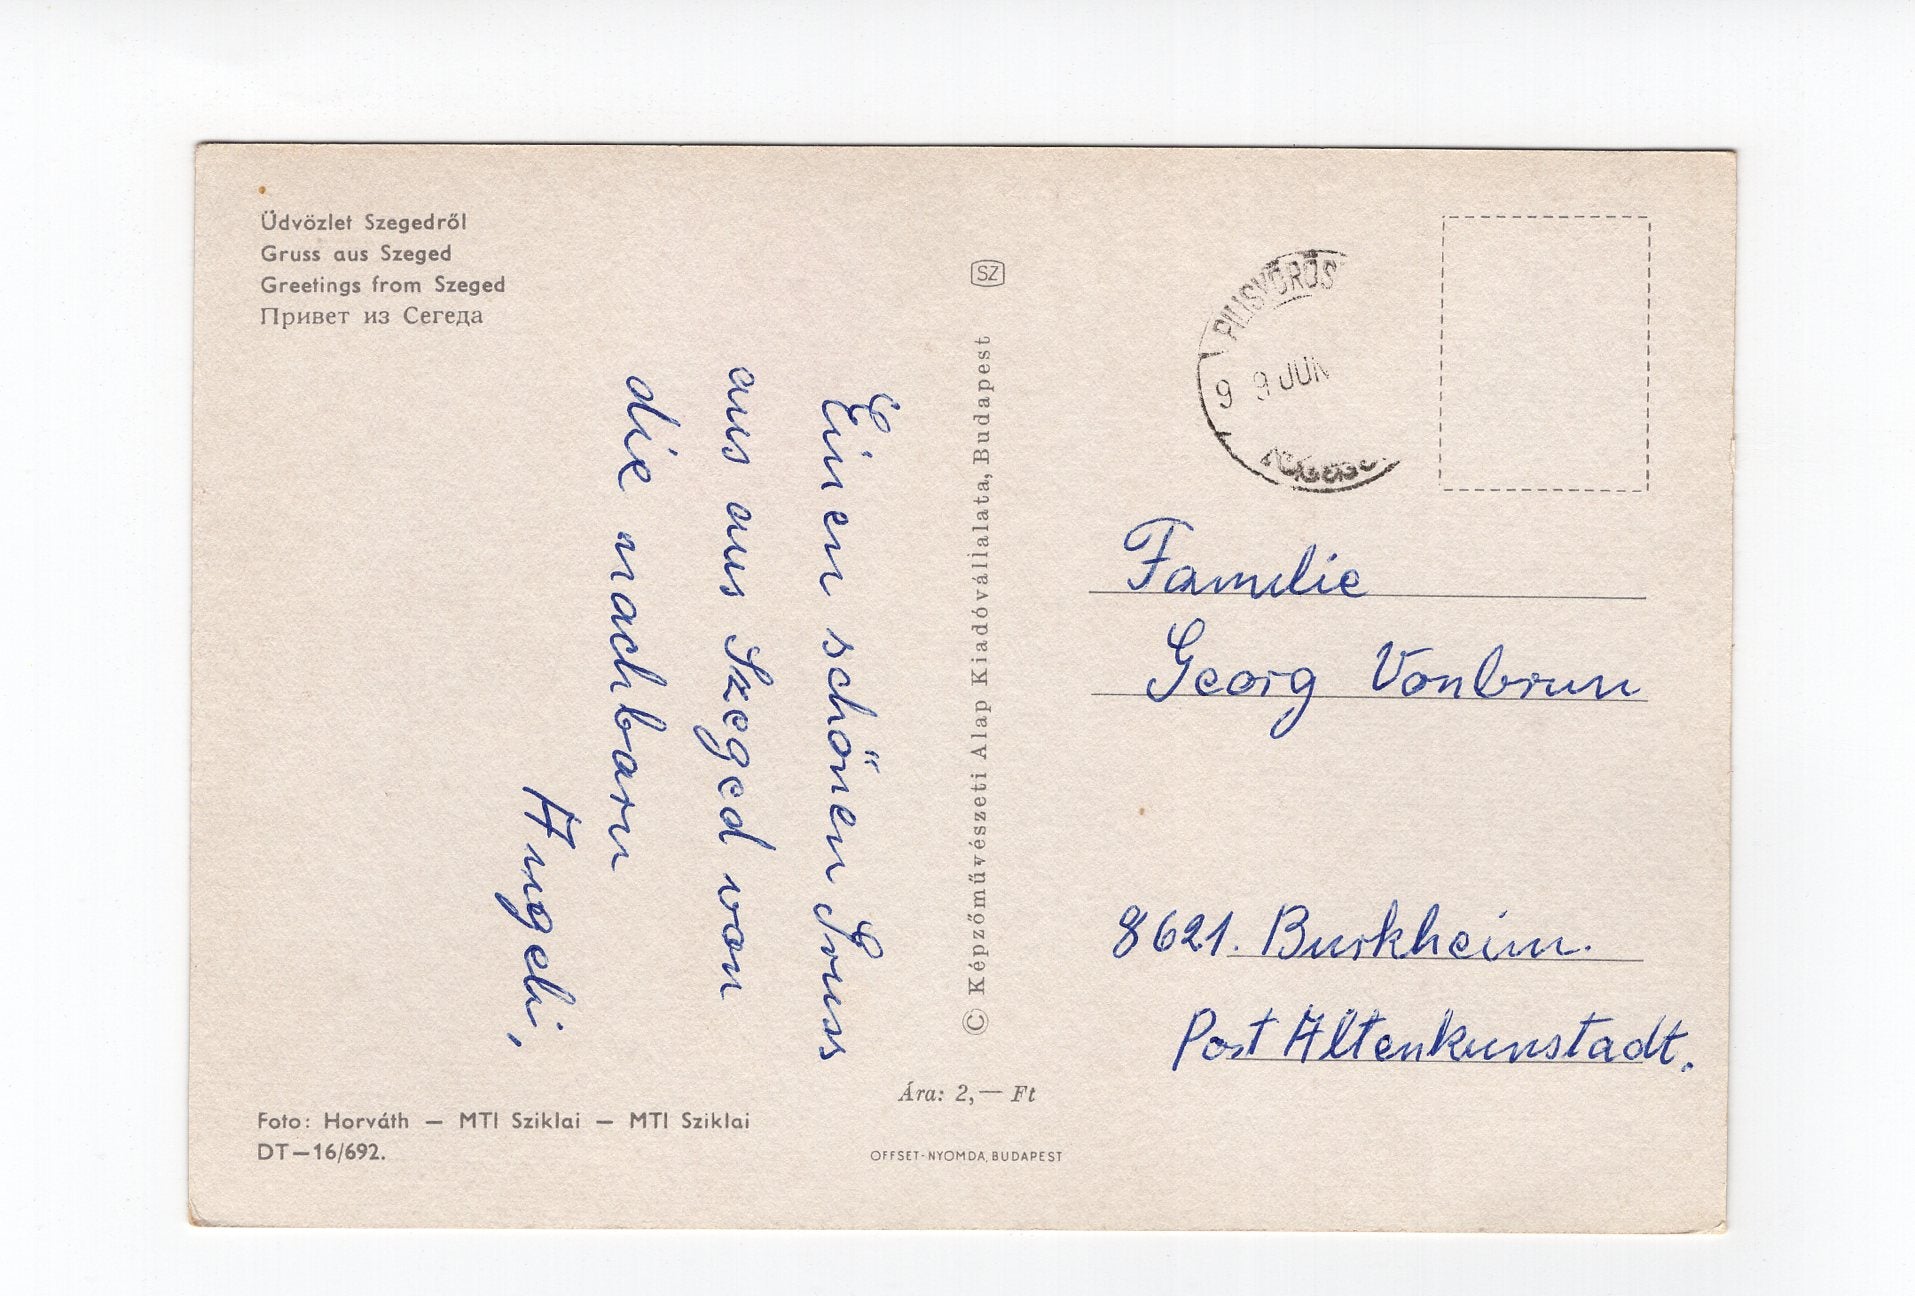 Üdvözlet Szegedről
Gruss aus Szeged
Greetings from Szeged
Привет из Сегеда
Einen schönen Gruss
aus aus Szeged von
die nachbarn
Angeli,
Foto: Horváth — MTI Sziklai — MTI Sziklai
DT—16/692.
SZ
© Képzőművészeti Alap Kiadóvállalata, Budapest
Ára: 2,— Ft
OFFSET-NYOMDA, BUDAPEST
PILISVÖRÖS
9 9 JUN
Familie
Georg Vonbrun
8621. Burkheim.
Post Altenkunstadt.